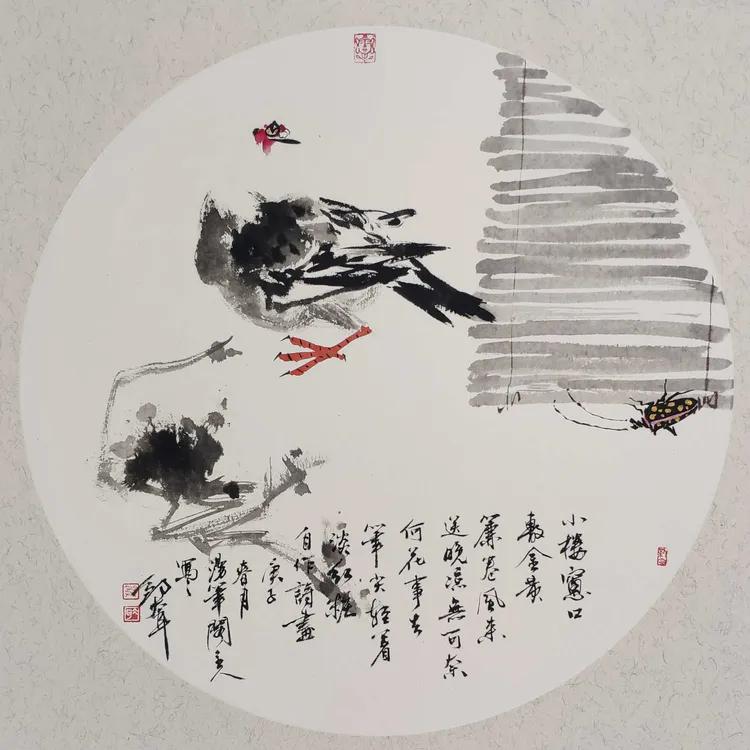 小樓窻口
數金黄
簾卷風來
送晚凉無可奈
何花事去
筆尖輕着
淡紅粧
自作詩畫
庚子
春月
筆閣主人
寫